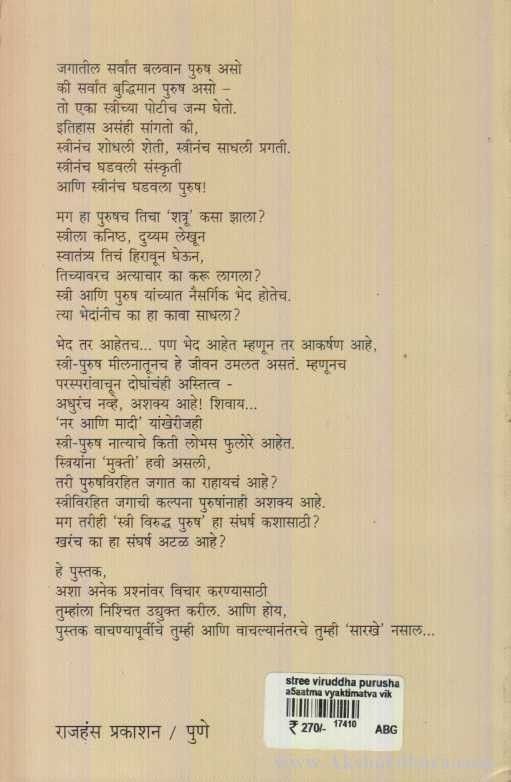 जगातील सर्वांत बलवान पुरुष असो
की सर्वांत बुद्धिमान पुरुष असो –
तो एका स्त्रीच्या पोटीच जन्म घेतो.
इतिहास असंही सांगतो की,
स्त्रीनंच शोधली शेती, स्त्रीनंच साधली प्रगती.
स्त्रीनंच घडवली संस्कृती
आणि स्त्रीनंच घडवला पुरुष!
मग हा पुरुषच तिचा 'शत्रू' कसा झाला?
स्त्रीला कनिष्ठ, दुय्यम लेखून
स्वातंत्र्य तिचं हिरावून घेऊन,
तिच्यावरच अत्याचार का करू लागला?
स्त्री आणि पुरुष यांच्यात नैसर्गिक भेद होतेच.
त्या भेदांनीच का हा कावा साधला?
भेद तर आहेतच... पण भेद आहेत म्हणून तर आकर्षण आहे,
स्त्री-पुरुष मीलनातूनच हे जीवन उमलत असतं. म्हणूनच
परस्परांवाचून दोघांचंही अस्तित्व -
अधुरंच नव्हे, अशक्य आहे! शिवाय...
'नर आणि मादी' यांखेरीजही
स्त्री-पुरुष नात्याचे किती लोभस फुलोरे आहेत.
स्त्रियांना 'मुक्ती' हवी असली,
तरी पुरुषविरहित जगात का राहायचं आहे?
स्त्रीविरहित जगाची कल्पना पुरुषांनाही अशक्य आहे.
मग तरीही 'स्त्री विरुद्ध पुरुष' हा संघर्ष कशासाठी?
खरंच का हा संघर्ष अटळ आहे?
हे पुस्तक,
अशा अनेक प्रश्नांवर विचार करण्यासाठी
तुम्हांला निश्चित उद्युक्त करील. आणि होय,
पुस्तक वाचण्यापूर्वीचे तुम्ही आणि वाचल्यानंतरचे तुम्ही 'सारखे' नसाल...
stree viruddha purusha
aSaatma vyaktimatva vik
₹ 270/- 17410 ABG
राजहंस प्रकाशन / पुणे